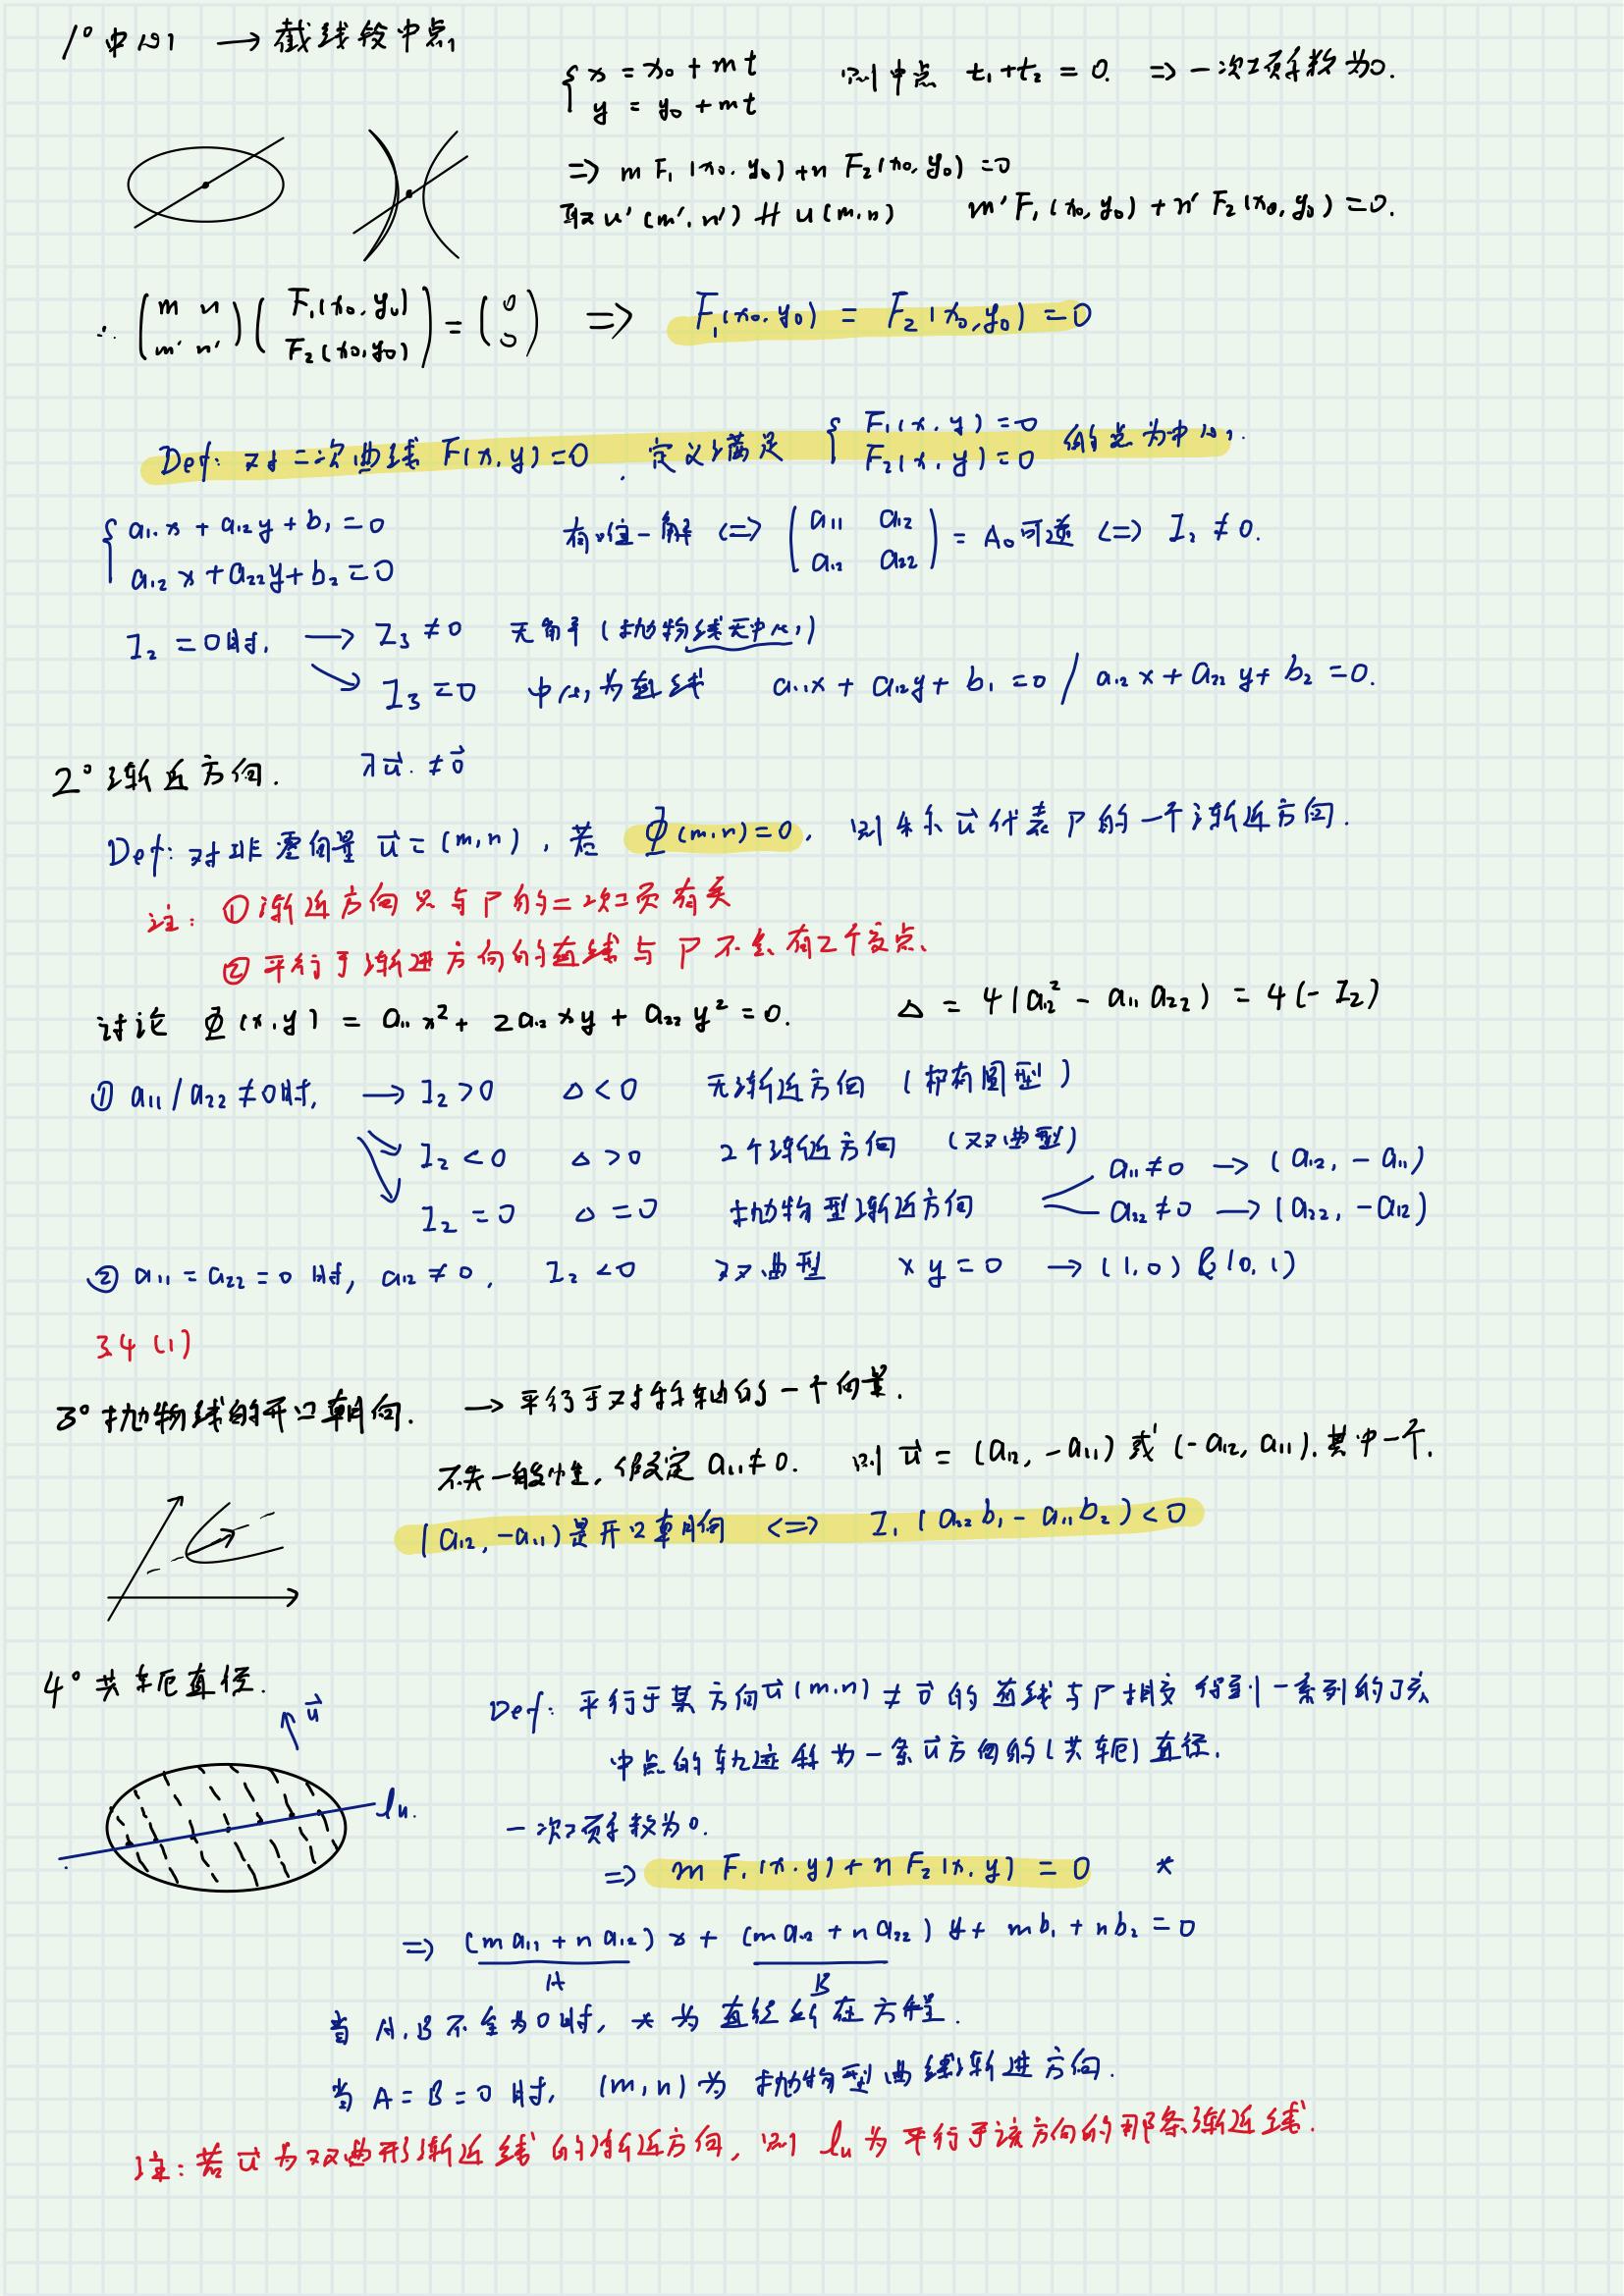 1° 中心 → 截线段中点
{ x = x₀ + mt
y = y₀ + mt
则中点 t₁+t₂ = 0. ⇒ 一次项系数为0.
⇒ m F₁(x₀, y₀) + n F₂(x₀, y₀) = 0
取 u'(m', n') ∦ u(m, n) m'F₁(x₀, y₀) + n'F₂(x₀, y₀) = 0.
∴ (m n
m' n') (F₁(x₀, y₀)
F₂(x₀, y₀)) = (0
0) ⇒ F₁(x₀, y₀) = F₂(x₀, y₀) = 0
Def: 对二次曲线 F(x, y) = 0, 定义满足 { F₁(x, y) = 0
F₂(x, y) = 0 的点为中心.
{ a₁₁x + a₁₂y + b₁ = 0
a₁₂x + a₂₂y + b₂ = 0
有唯一解 <=> (a₁₁ a₁₂
a₁₂ a₂₂) = A₀可逆 <=> I₂ ≠ 0.
I₂ = 0时, → I₃ ≠ 0 无解 (抛物线无中心)
↘ I₃ = 0 中心为直线 a₁₁x + a₁₂y + b₁ = 0 / a₁₂x + a₂₂y + b₂ = 0.
2° 渐近方向. λu⃗ ≠ 0⃗
Def: 对非零向量 u⃗ = (m, n), 若 Φ(m, n) = 0, 则称 u⃗ 代表 Γ 的一个渐近方向.
注: ① 渐近方向只与 Γ 的二次项有关
② 平行于渐进方向的直线与 Γ 不会有2个交点、
讨论 Φ(x, y) = a₁₁x² + 2a₁₂xy + a₂₂y² = 0. Δ = 4(a₁₂² - a₁₁a₂₂) = 4(-I₂)
① a₁₁/a₂₂ ≠ 0时, → I₂ > 0 Δ < 0 无渐近方向 (椭圆型)
↘ I₂ < 0 Δ > 0 2个渐近方向 (双曲型)
↘ I₂ = 0 Δ = 0 抛物型渐近方向
a₁₁ ≠ 0 → (a₁₂, -a₁₁)
a₂₂ ≠ 0 → (a₂₂, -a₁₂)
② a₁₁ = a₂₂ = 0 时, a₁₂ ≠ 0, I₂ < 0 双曲型 xy = 0 → (1, 0) & (0, 1)
3.4 (1)
3° 抛物线的开口朝向. → 平行于对称轴的一个向量.
不失一般性, 假定 a₁₁ ≠ 0. 则 u⃗ = (a₁₂, -a₁₁) 或 (-a₁₂, a₁₁). 其中一个.
(a₁₂, -a₁₁)是开口朝向 <=> I₁(a₂₂b₁ - a₁₁b₂) < 0
4° 共轭直径.
u⃗
lᵤ.
Def: 平行于某方向 u⃗(m, n) ≠ 0⃗ 的直线与 Γ 相交 得到一系列的弦
中点的轨迹称为一条 u⃗ 方向的(共轭)直径.
一次项系数为0.
⇒ m F₁(x, y) + n F₂(x, y) = 0 *
⇒ (ma₁₁ + na₁₂)x + (ma₁₂ + na₂₂)y + mb₁ + nb₂ = 0
A B
当 A, B 不全为0时, * 为直径所在方程.
当 A = B = 0 时, (m, n) 为 抛物型曲线渐进方向.
注: 若 u⃗ 为双曲形渐近线的渐近方向, 则 lᵤ 为平行于该方向的那条渐近线.